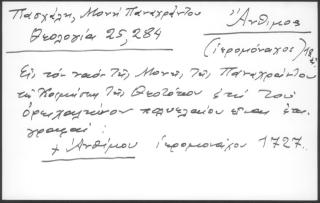 Πασχάλη, Μονή Παναχράντου
Θεολογία 25, 284
Ἄνθιμος
(ἱερομόναχος) 18
Εἰς τόν ναόν τῆς Μονῆς τῆς Παναχράντου
τῆς Κοιμήσεως τῆς Θεοτόκου ἐπί τοῦ
ὀρειχαλκίνου πολυελαίου εἶναι ἐπι-
γραφαί :
+ Ἀνθίμου ἱερομονάχου 1727.